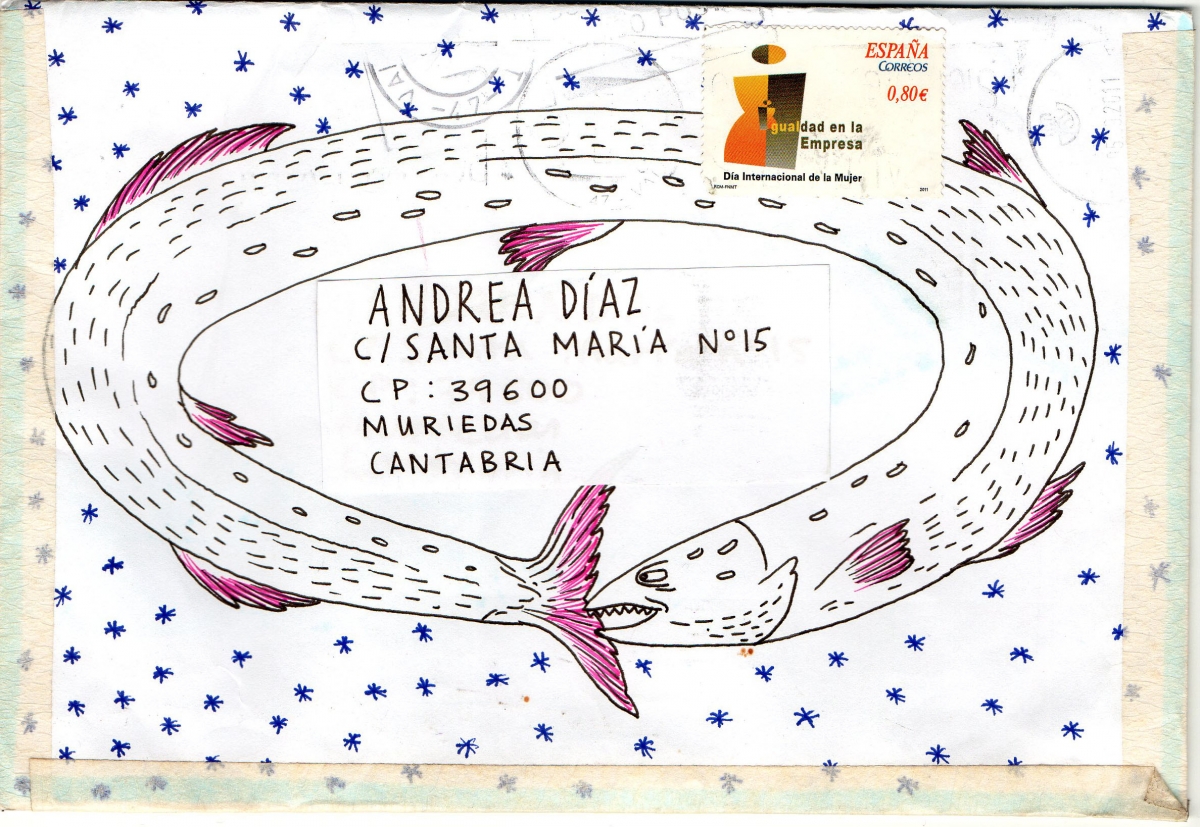 ESPAÑA
CORREOS
0,80€
Igualdad en la
Empresa
Día Internacional de la Mujer
RCM-FNMT
2011
ANDREA DÍAZ
C/ SANTA MARÍA Nº15
CP: 39600
MURIEDAS
CANTABRIA
2011